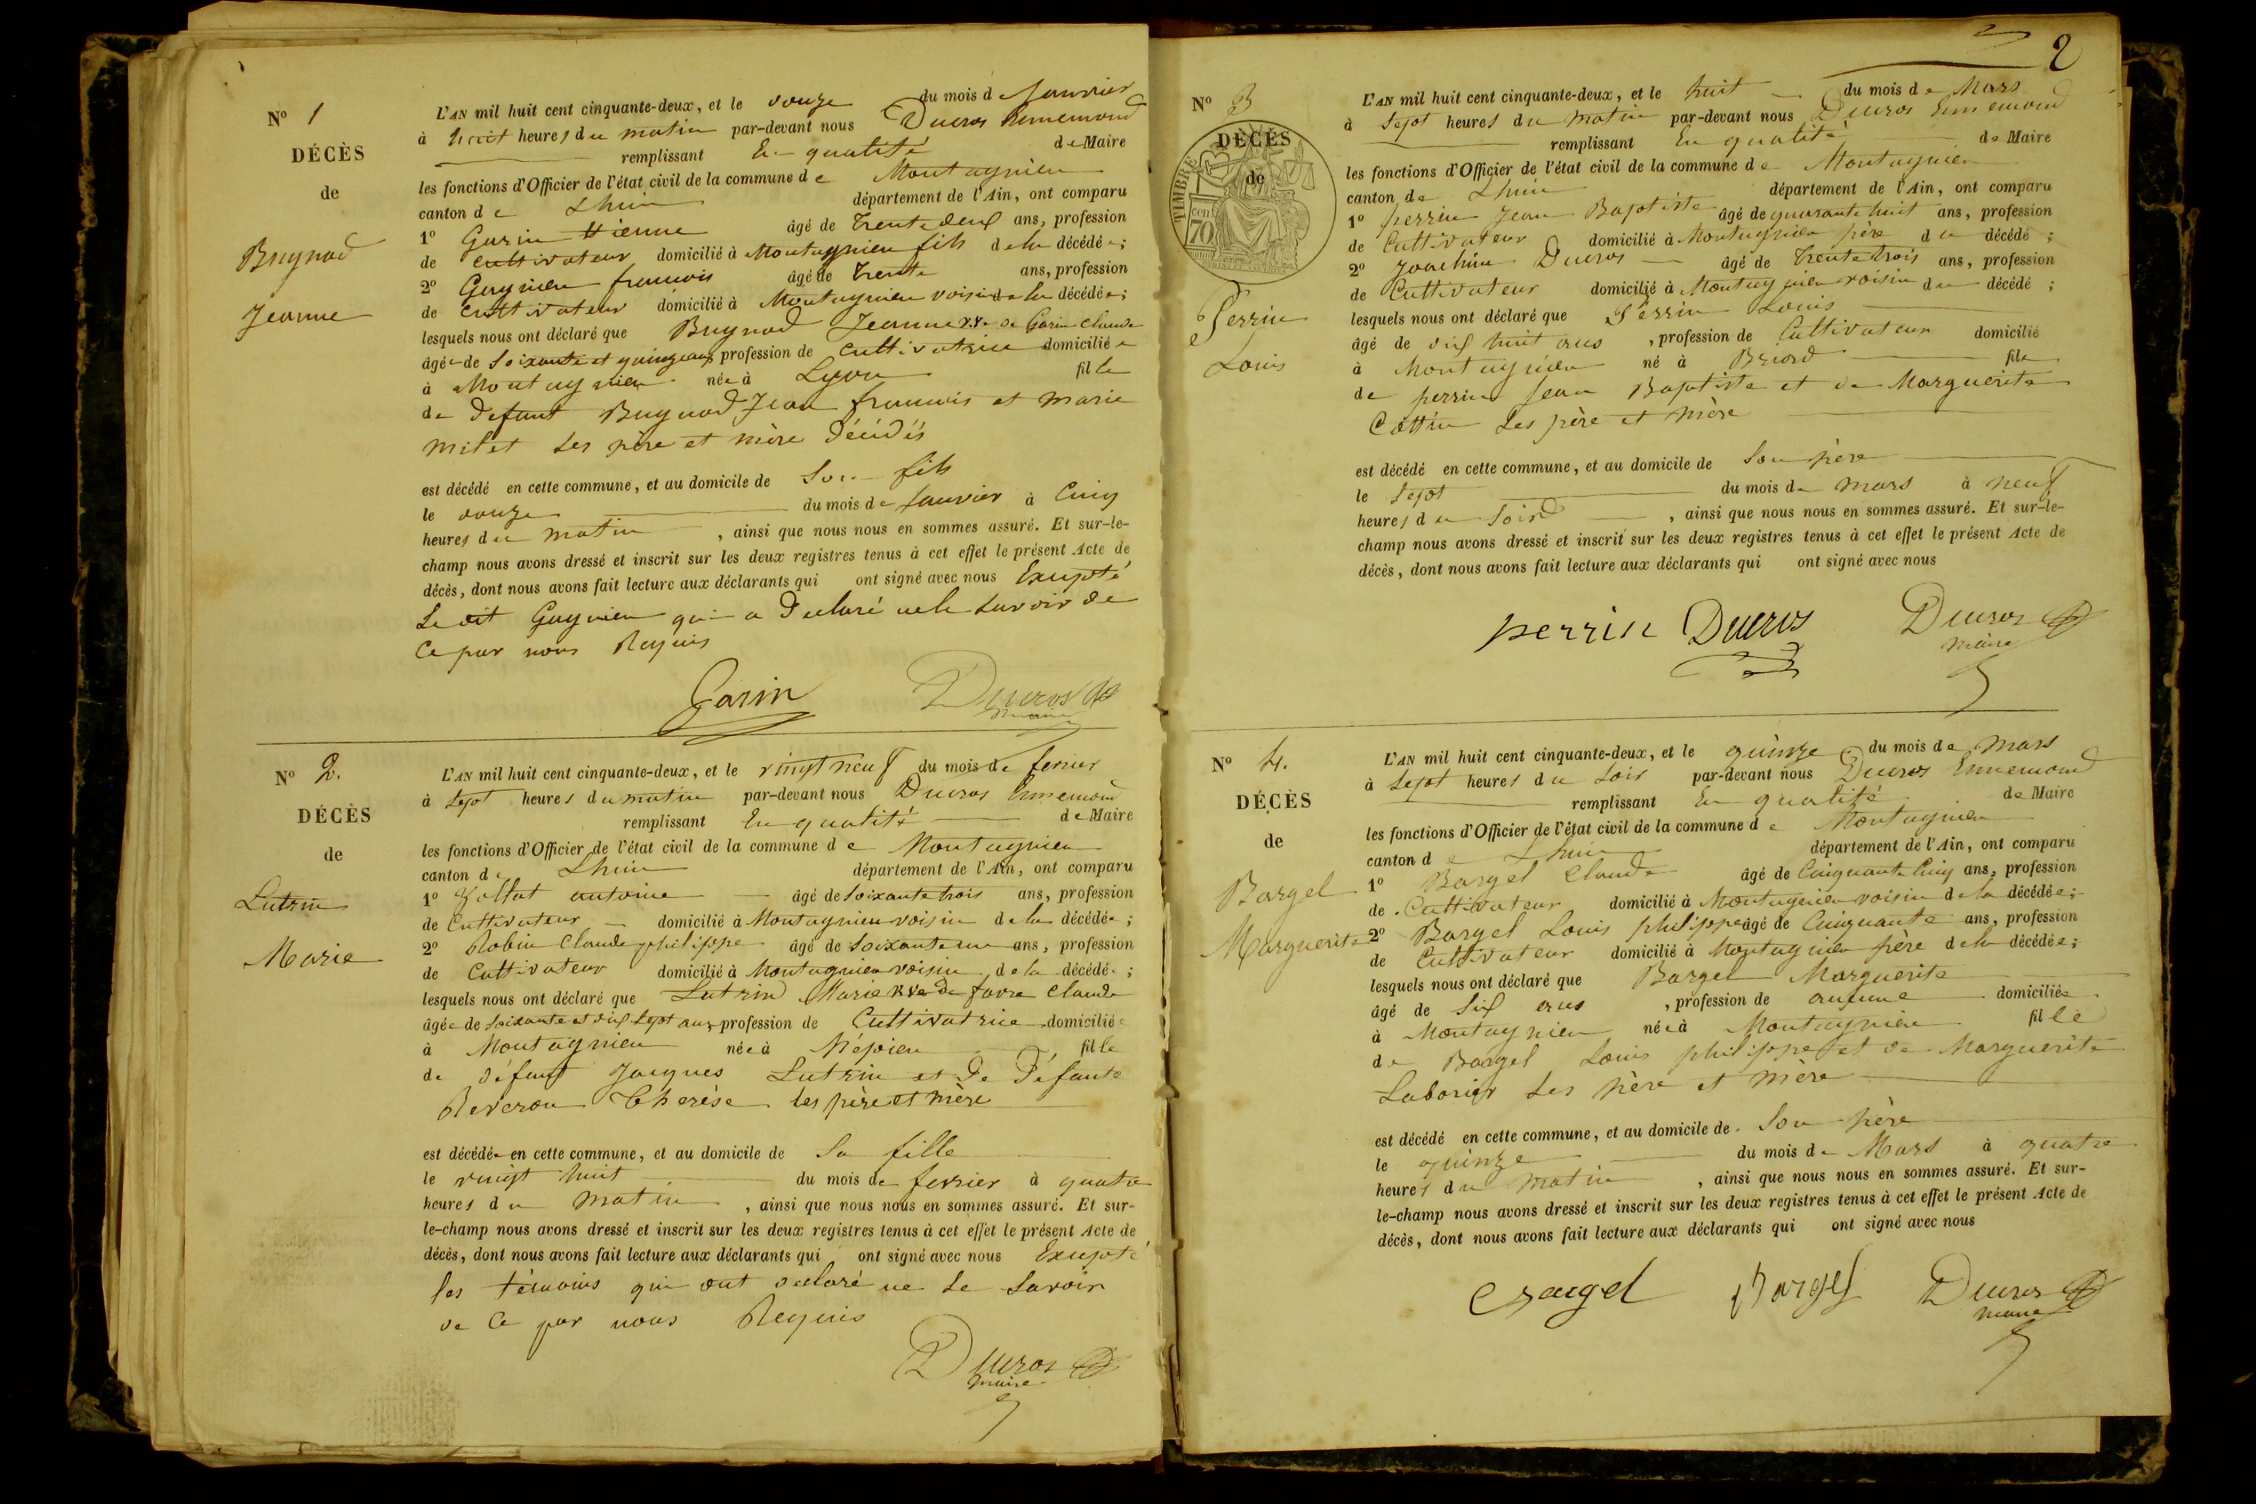 N° 1
DÉCÈS
de
Bugnod
Jeanne
L'AN mil huit cent cinquante-deux, et le douze du mois de Janvier
à huit heures du matin par-devant nous Ducros Ennemond
remplissant En qualité de Maire
les fonctions d'Officier de l'état civil de la commune de Montagnieu
canton de Lhuis département de l'Ain, ont comparu
1° Garin Etienne âgé de trente deux ans, profession
de cultivateur domicilié à Montagnieu fils de la décédée;
2° Gagnieu francois âgé de trente ans, profession
de cultivateur domicilié à Montagnieu voisin de la décédée;
lesquels nous ont déclaré que Bugnod Jeanne Vve de Garin Claude
âgée de soixante et quinze ans profession de cultivatrice domiciliée
à Montagnieu née à Lyon fille
de defunt Bugnod Jean francois et marie
milet ses père et mère décédés
est décédé en cette commune, et au domicile de Son fils
le douze du mois de Janvier à Cinq
heures du matin, ainsi que nous nous en sommes assuré. Et sur-le-
champ nous avons dressé et inscrit sur les deux registres tenus à cet effet le présent Acte de
décès, dont nous avons fait lecture aux déclarants qui ont signé avec nous Excepté
Le dit Gagnieu qui a déclaré ne le savoir de
Ce par nous Requis
Garin Ducros
maire
N° 2.
DÉCÈS
de
Lutrin
Marie
L'AN mil huit cent cinquante-deux, et le vingt neuf du mois de fevrier
à Sept heures du matin par-devant nous Ducros Ennemond
remplissant En qualité de Maire
les fonctions d'Officier de l'état civil de la commune de Montagnieu
canton de Lhuis département de l'Ain, ont comparu
1° antoine âgé de soixante trois ans, profession
de Cultivateur domicilié à Montagnieu voisin de la décédée;
2° Robin Claude philippe âgé de soixante un ans, profession
de Cultivateur domicilié à Montagnieu voisin de la décédé;
lesquels nous ont déclaré que Lutrin Marie Vve de favre Claude
âgée de soixante et dix sept ans profession de Cultivatrice domiciliée
à Montagnieu née à fille
de défunt Jacques Lutrin et De Défunte
Revcron Therèse ses père et mère
est décédée en cette commune, et au domicile de Sa fille
le vingt huit du mois de fevrier à quatre
heures du matin, ainsi que nous nous en sommes assuré. Et sur-
le-champ nous avons dressé et inscrit sur les deux registres tenus à cet effet le présent Acte de
décès, dont nous avons fait lecture aux déclarants qui ont signé avec nous Excepté
les témoins qui ont déclaré ne le Savoir
de Ce par nous Requis
Ducros
maire
2
N° 3
DÉCÈS
de
TIMBRE
70 cent
Perrin
Louis
L'AN mil huit cent cinquante-deux, et le huit du mois de Mars
à Sept heures du matin par-devant nous Ducros Ennemond
remplissant En qualité de Maire
les fonctions d'Officier de l'état civil de la commune de Montagnieu
canton de Lhuis département de l'Ain, ont comparu
1° perrin Jean Baptiste âgé de quarante huit ans, profession
de Cultivateur domicilié à Montagnieu père du décédé;
2° Joachim Ducros âgé de trente trois ans, profession
de Cultivateur domicilié à Montagnieu voisin du décédé;
lesquels nous ont déclaré que Perrin Louis
âgé de dix huit ans, profession de Cultivateur domicilié
à Montagnieu né à Briord fils
de perrin Jean Baptiste et de Marguerite
Cottin Ses père et mère
est décédé en cette commune, et au domicile de Son père
le Sept du mois de mars à neuf
heures du Soir, ainsi que nous nous en sommes assuré. Et sur-le-
champ nous avons dressé et inscrit sur les deux registres tenus à cet effet le présent Acte de
décès, dont nous avons fait lecture aux déclarants qui ont signé avec nous
perrin Ducros Ducros
maire
N° 4.
DÉCÈS
de
Bargel
Marguerite
L'AN mil huit cent cinquante-deux, et le quinze du mois de Mars
à Sept heures du Soir par-devant nous Ducros Ennemond
remplissant En qualité de Maire
les fonctions d'Officier de l'état civil de la commune de Montagnieu
canton de Lhuis département de l'Ain, ont comparu
1° Bargel Claude âgé de Cinquante Cinq ans, profession
de Cultivateur domicilié à Montagnieu voisin de la décédée;
2° Bargel Louis philippe âgé de Cinquante ans, profession
de Cultivateur domicilié à Montagnieu père de la décédée;
lesquels nous ont déclaré que Bargel Marguerite
âgé de Six ans, profession de aucune domiciliée
à Montagnieu née à Montagnieu fille
de Bargel Louis philippe et de Marguerite
Laborier Ses père et mère
est décédé en cette commune, et au domicile de Son père
le quinze du mois de Mars à quatre
heures du matin, ainsi que nous nous en sommes assuré. Et sur-
le-champ nous avons dressé et inscrit sur les deux registres tenus à cet effet le présent Acte de
décès, dont nous avons fait lecture aux déclarants qui ont signé avec nous
Bargel Bargel Ducros
maire